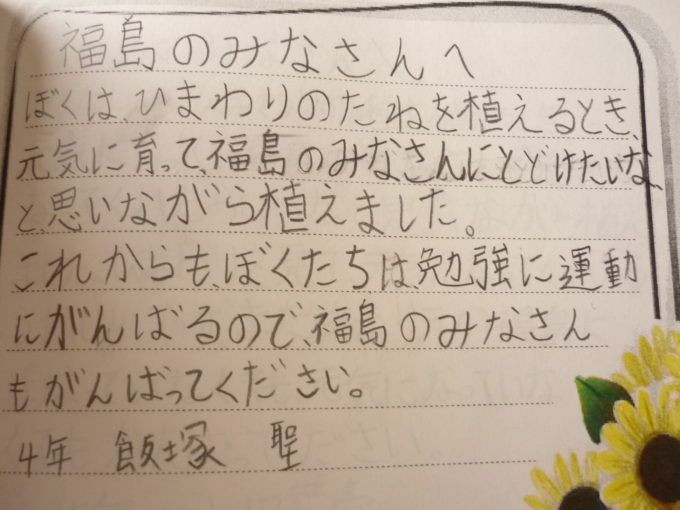 福島のみなさんへ
ぼくは、ひまわりのたねを植えるとき、
元気に育って、福島のみなさんにとどけたいな、
と、思いながら植えました。
これからも、ぼくたちは、勉強に運動
にがんばるので、福島のみなさん
もがんばってください。
4年 飯塚 聖